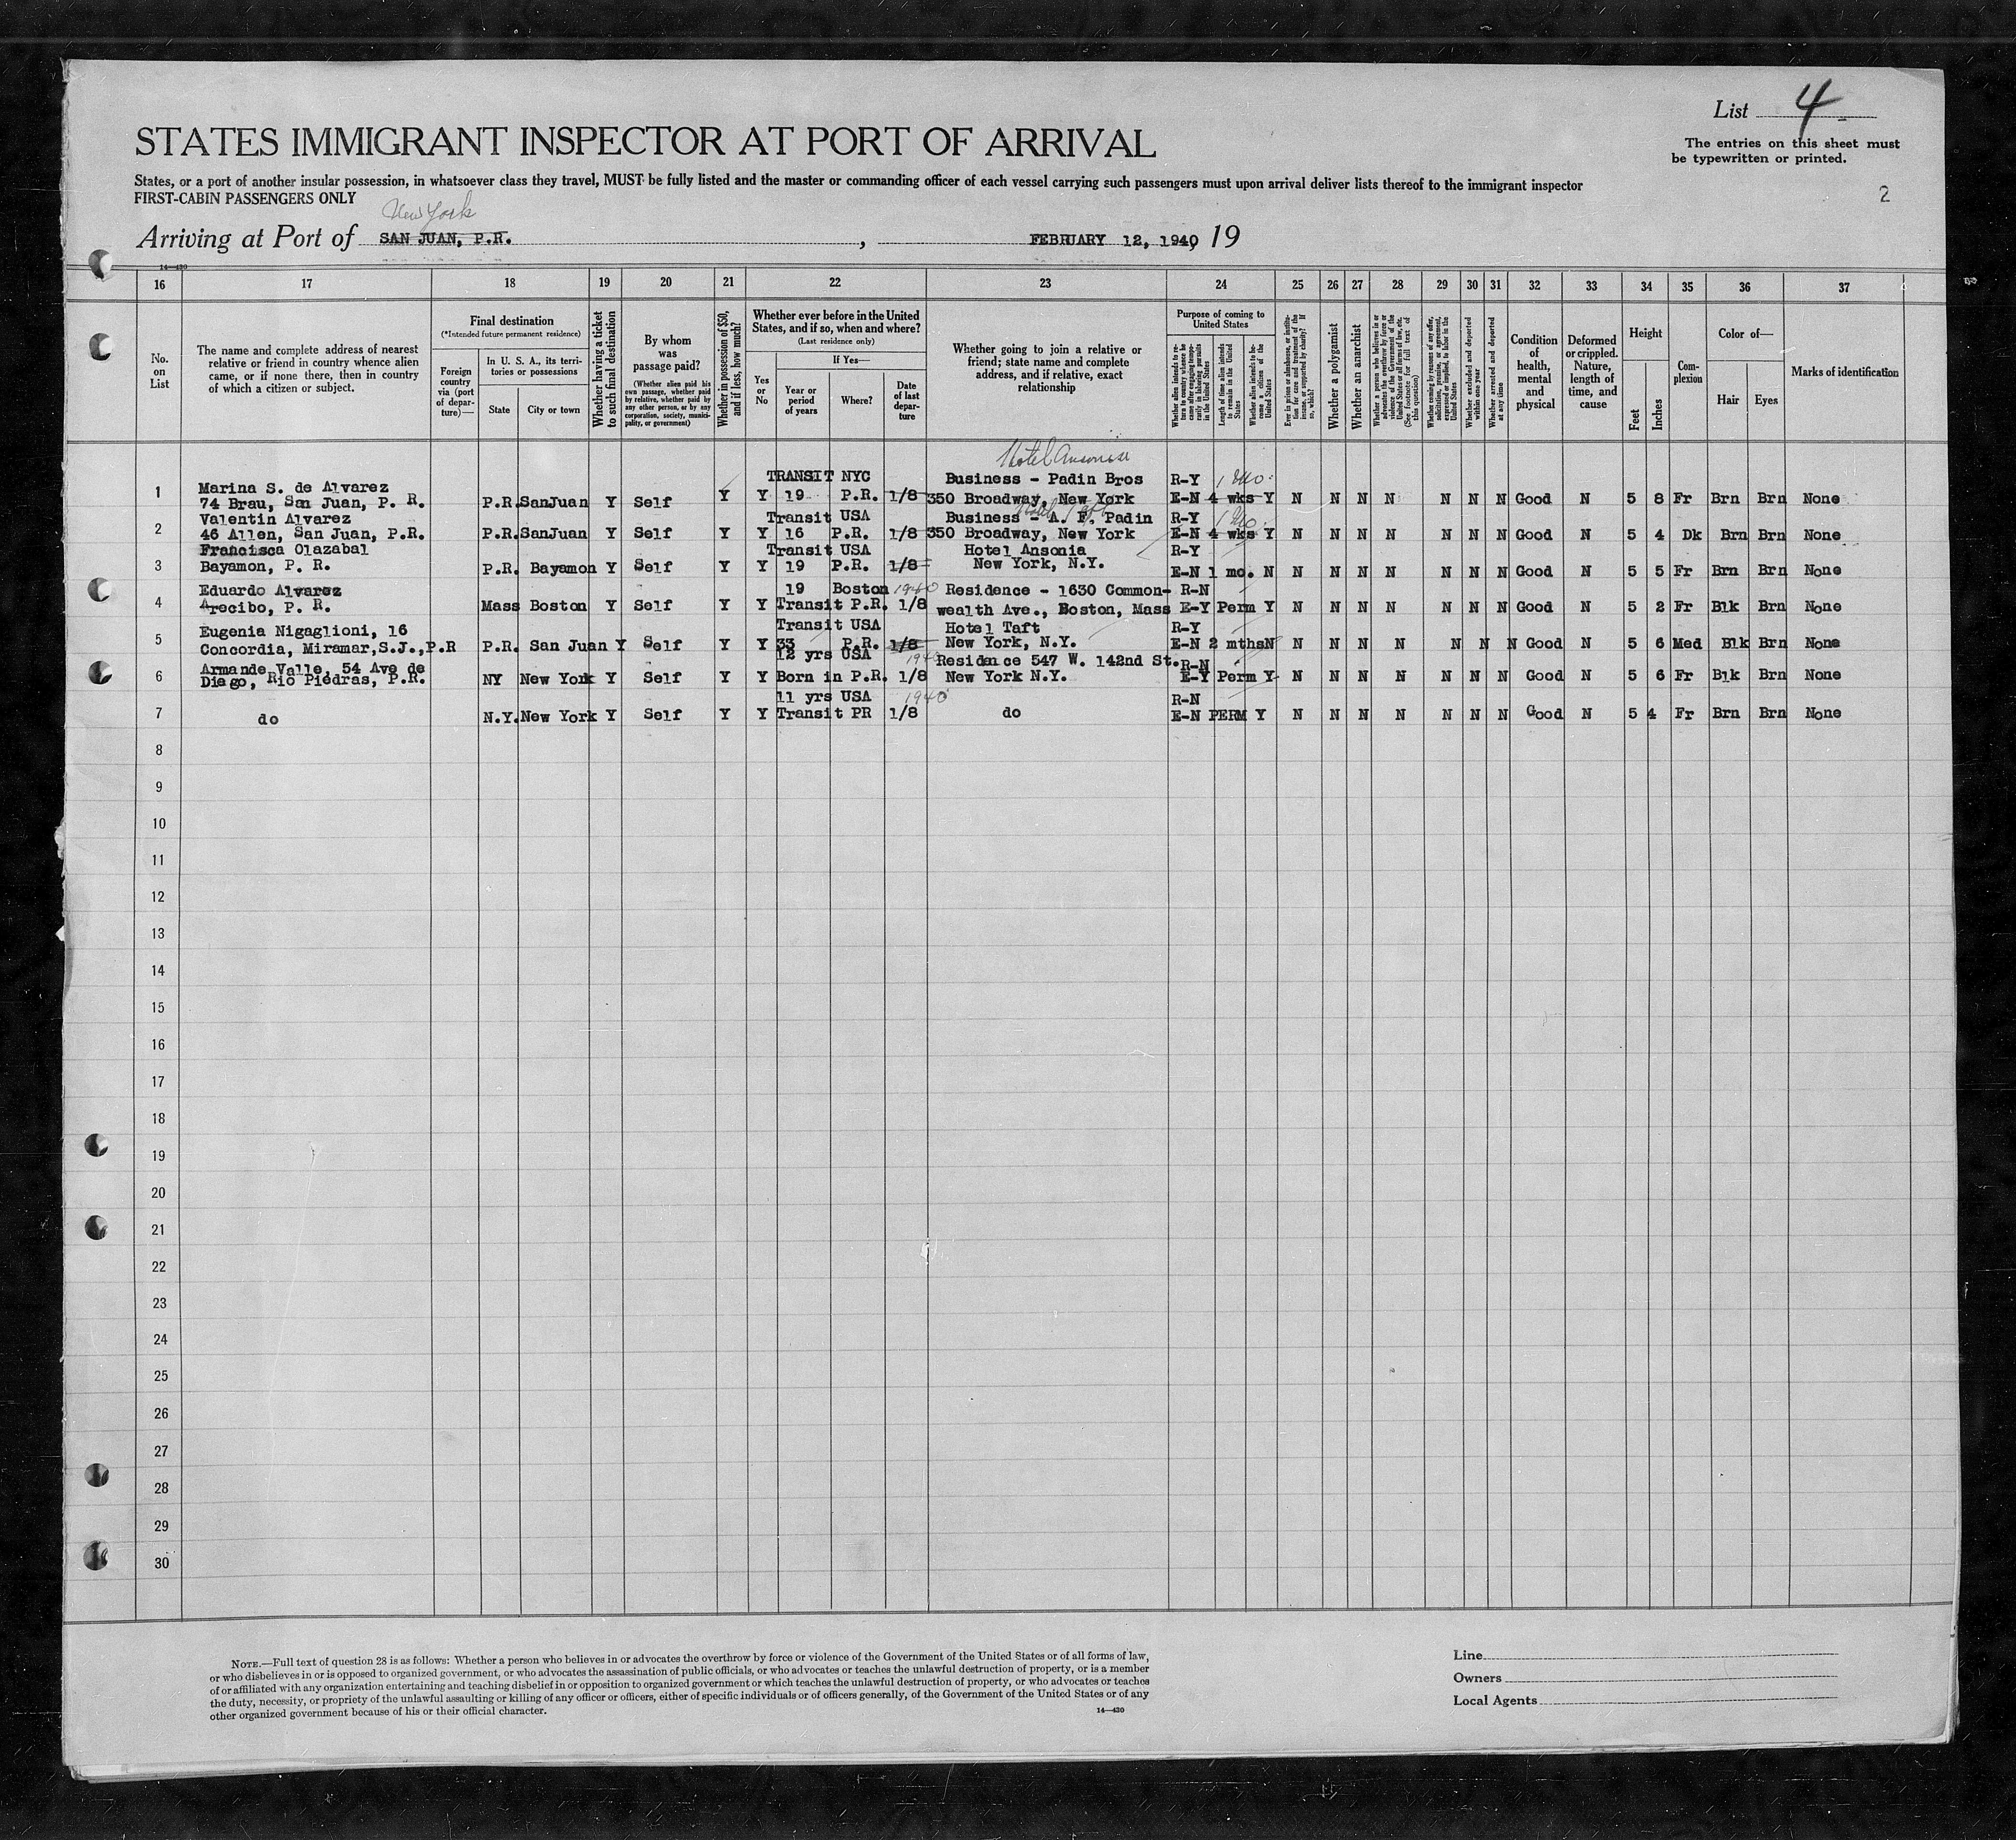 List 4
STATES IMMIGRANT INSPECTOR AT PORT OF ARRIVAL
The entries on this sheet must
be typewritten or printed.
States, or a port of another insular possession, in whatsoever class they travel, MUST be fully listed and the master or commanding officer of each vessel carrying such passengers must upon arrival deliver lists thereof to the immigrant inspector
FIRST-CABIN PASSENGERS ONLY
2
New York
Arriving at Port of SAN JUAN, P.R. , FEBRUARY 12, 1940, 19
14—430
16 17 18 19 20 21 22 23 24 25 26 27 28 29 30 31 32 33 34 35 36 37
No. on List
The name and complete address of nearest
relative or friend in country whence alien
came, or if none there, then in country
of which a citizen or subject.
Final destination
(*Intended future permanent residence)
Foreign country via (port of departure)—
In U. S. A., its territories or possessions
State
City or town
Whether having a ticket to such final destination
By whom was passage paid?
(Whether alien paid his own passage, whether paid by relative, whether paid by any other person, or by any corporation, society, municipality, or government)
Whether in possession of $50, and if less, how much?
Whether ever before in the United States, and if so, when and where?
(Last residence only)
Yes or No
If Yes—
Year or period of years
Where?
Date of last departure
Whether going to join a relative or
friend; state name and complete
address, and if relative, exact
relationship
Purpose of coming to United States
Whether alien intends to return to country whence he came after engaging temporarily in laboring pursuits in the United States
Length of time alien intends to remain in the United States
Whether alien intends to become a citizen of the United States
Ever in prison or almshouse, or institution for care and treatment of the insane, or supported by charity? If so, which?
Whether a polygamist
Whether an anarchist
Whether a person who believes in or advocates the overthrow by force or violence of the Government of the United States or all forms of law, etc. (See footnote for full text of this question)
Whether coming by reason of any offer, solicitation, promise, or agreement, expressed or implied, to labor in the United States
Whether excluded and deported within one year
Whether arrested and deported at any time
Condition of health, mental and physical
Deformed or crippled. Nature, length of time, and cause
Height
Feet
Inches
Complexion
Color of—
Hair
Eyes
Marks of identification
Hotel Ansonia
Marina S. de Alvarez TRANSIT NYC Business - Padin Bros R-Y 1 Mo.
1 74 Brau, San Juan, P. R. P.R. SanJuan Y Self Y Y 19 P.R. 1/8 350 Broadway, New York E-N 4 wks Y N N N N N N N Good N 5 8 Fr Brn Brn None
Valentin Alvarez Transit USA Business - A. F. Padin R-Y 1 Mo.
2 46 Allen, San Juan, P.R. P.R. SanJuan Y Self Y Y 16 P.R. 1/8 350 Broadway, New York E-N 4 wks Y N N N N N N N Good N 5 4 Dk Brn Brn None
Francisca Olazabal Transit USA Hotel Ansonia R-Y
3 Bayamon, P. R. P.R. Bayamon Y Self Y Y 19 P.R. 1/8 New York, N.Y. E-N 1 mo. N N N N N N N N Good N 5 5 Fr Brn Brn None
Eduardo Alvarez 19 Boston 1940 Residence - 1630 Common- R-N
4 Arecibo, P. R. Mass Boston Y Self Y Y Transit P.R. 1/8 wealth Ave., Boston, Mass E-Y Perm Y N N N N N N N Good N 5 2 Fr Blk Brn None
Eugenia Nigaglioni, 16 Transit USA Hotel Taft R-Y
5 Concordia, Miramar,S.J.,P.R P.R. San Juan Y Self Y Y 33 P.R. 1/8 New York, N.Y. E-N 2 mths N N N N N N N N Good N 5 6 Med Blk Brn None
Armande Valle, 54 Ave de 12 yrs USA 1940 Residence 547 W. 142nd St. R-N
6 Diego, Rio Piedras, P.R. NY New York Y Self Y Y Born in P.R. 1/8 New York N.Y. E-Y Perm Y N N N N N N N Good N 5 6 Fr Blk Brn None
11 yrs USA 1940 R-N
7 do N.Y. New York Y Self Y Y Transit PR 1/8 do E-N PERM Y N N N N N N N Good N 5 4 Fr Brn Brn None
8
9
10
11
12
13
14
15
16
17
18
19
20
21
22
23
24
25
26
27
28
29
30
NOTE.—Full text of question 28 is as follows: Whether a person who believes in or advocates the overthrow by force or violence of the Government of the United States or of all forms of law,
or who disbelieves in or is opposed to organized government, or who advocates the assassination of public officials, or who advocates or teaches the unlawful destruction of property, or is a member
of or affiliated with any organization entertaining and teaching disbelief in or opposition to organized government or which teaches the unlawful destruction of property, or who advocates or teaches
the duty, necessity, or propriety of the unlawful assaulting or killing of any officer or officers, either of specific individuals or of officers generally, of the Government of the United States or of any
other organized government because of his or their official character.
14—430
Line
Owners
Local Agents